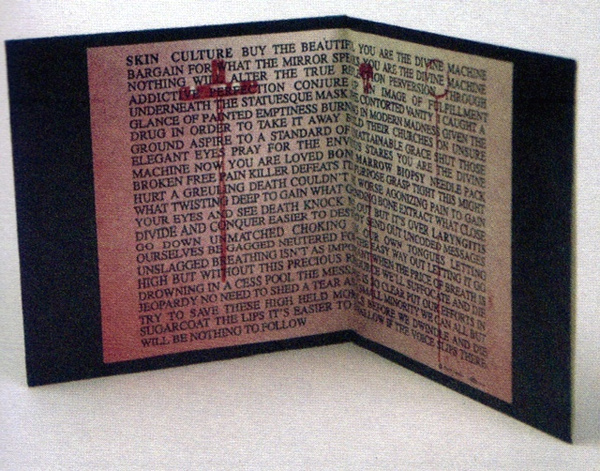 SKIN CULTURE BUY THE BEAUTIFUL YOU ARE THE DIVINE MACHINE
BARGAIN FOR WHAT THE MIRROR SPEAKS YOU ARE THE DIVINE MACHINE
NOTHING WILL ALTER THE TRUE RELIGION PERVERSION THROUGH
ADDICTIVE PERFECTION CONJURE UP AN IMAGE OF FULFILLMENT
UNDERNEATH THE STATUESQUE MASK THE CONTORTED VANITY I CAUGHT A
GLANCE OF PAINTED EMPTINESS BURNED IN MODERN MADNESS GIVEN THE
DRUG IN ORDER TO TAKE IT AWAY BUILD THEIR CHURCHES ON UNSURE
GROUND ASPIRE TO A STANDARD OF UNATTAINABLE GRACE SHUT THOSE
ELEGANT EYES PRAY FOR THE ENVIOUS STARES YOU ARE THE DIVINE
MACHINE NOW YOU ARE LOVED BONE MARROW BIOPSY NEEDLE PACK
BROKEN FREE PAIN KILLER DEFEATS ITS PURPOSE GRASP TIGHT THIS MIGHT
HURT A GREULING DEATH COULDN'T BE WORSE AGONIZING PAIN TO GAIN
WHAT TWISTING DEEP TO GAIN WHAT GRINDING BONE EXTRACT WHAT CLOSE
YOUR EYES AND SEE DEATH KNOCK OUT BUT IT'S OVER LARYNGITIS
DIVIDE AND CONQUER EASIER TO DESTROY SEND OUT UNCODED MESSAGES
GO DOWN UNMATCHED CHOKING ON OUR OWN TONGUES LETTING
OURSELVES BE GAGGED NEUTERED FOR THE EASY WAY OUT LETTING IT GO
UNSLAGGED BREATHING ISN'T AS IMPORTANT WHEN THE PRICE OF BREATH IS
HIGH BUT WITHOUT THIS PRECIOUS WE'LL SUFFOCATE AND DIE
DROWNING IN A CESS POOL THE MESSAGE IS SO CLEAR PUT OUR EFFORTS IN
JEOPARDY NO NEED TO SHED A TEAR AS A MINORITY WE CAN ALL BUT
TRY TO SAVE THESE HIGH HELD MORALS BEFORE WE DWINDLE AND DIE
SUGARCOAT THE LIPS IT'S EASIER TO SWALLOW IF THE VOICE SLIPS THERE
WILL BE NOTHING TO FOLLOW